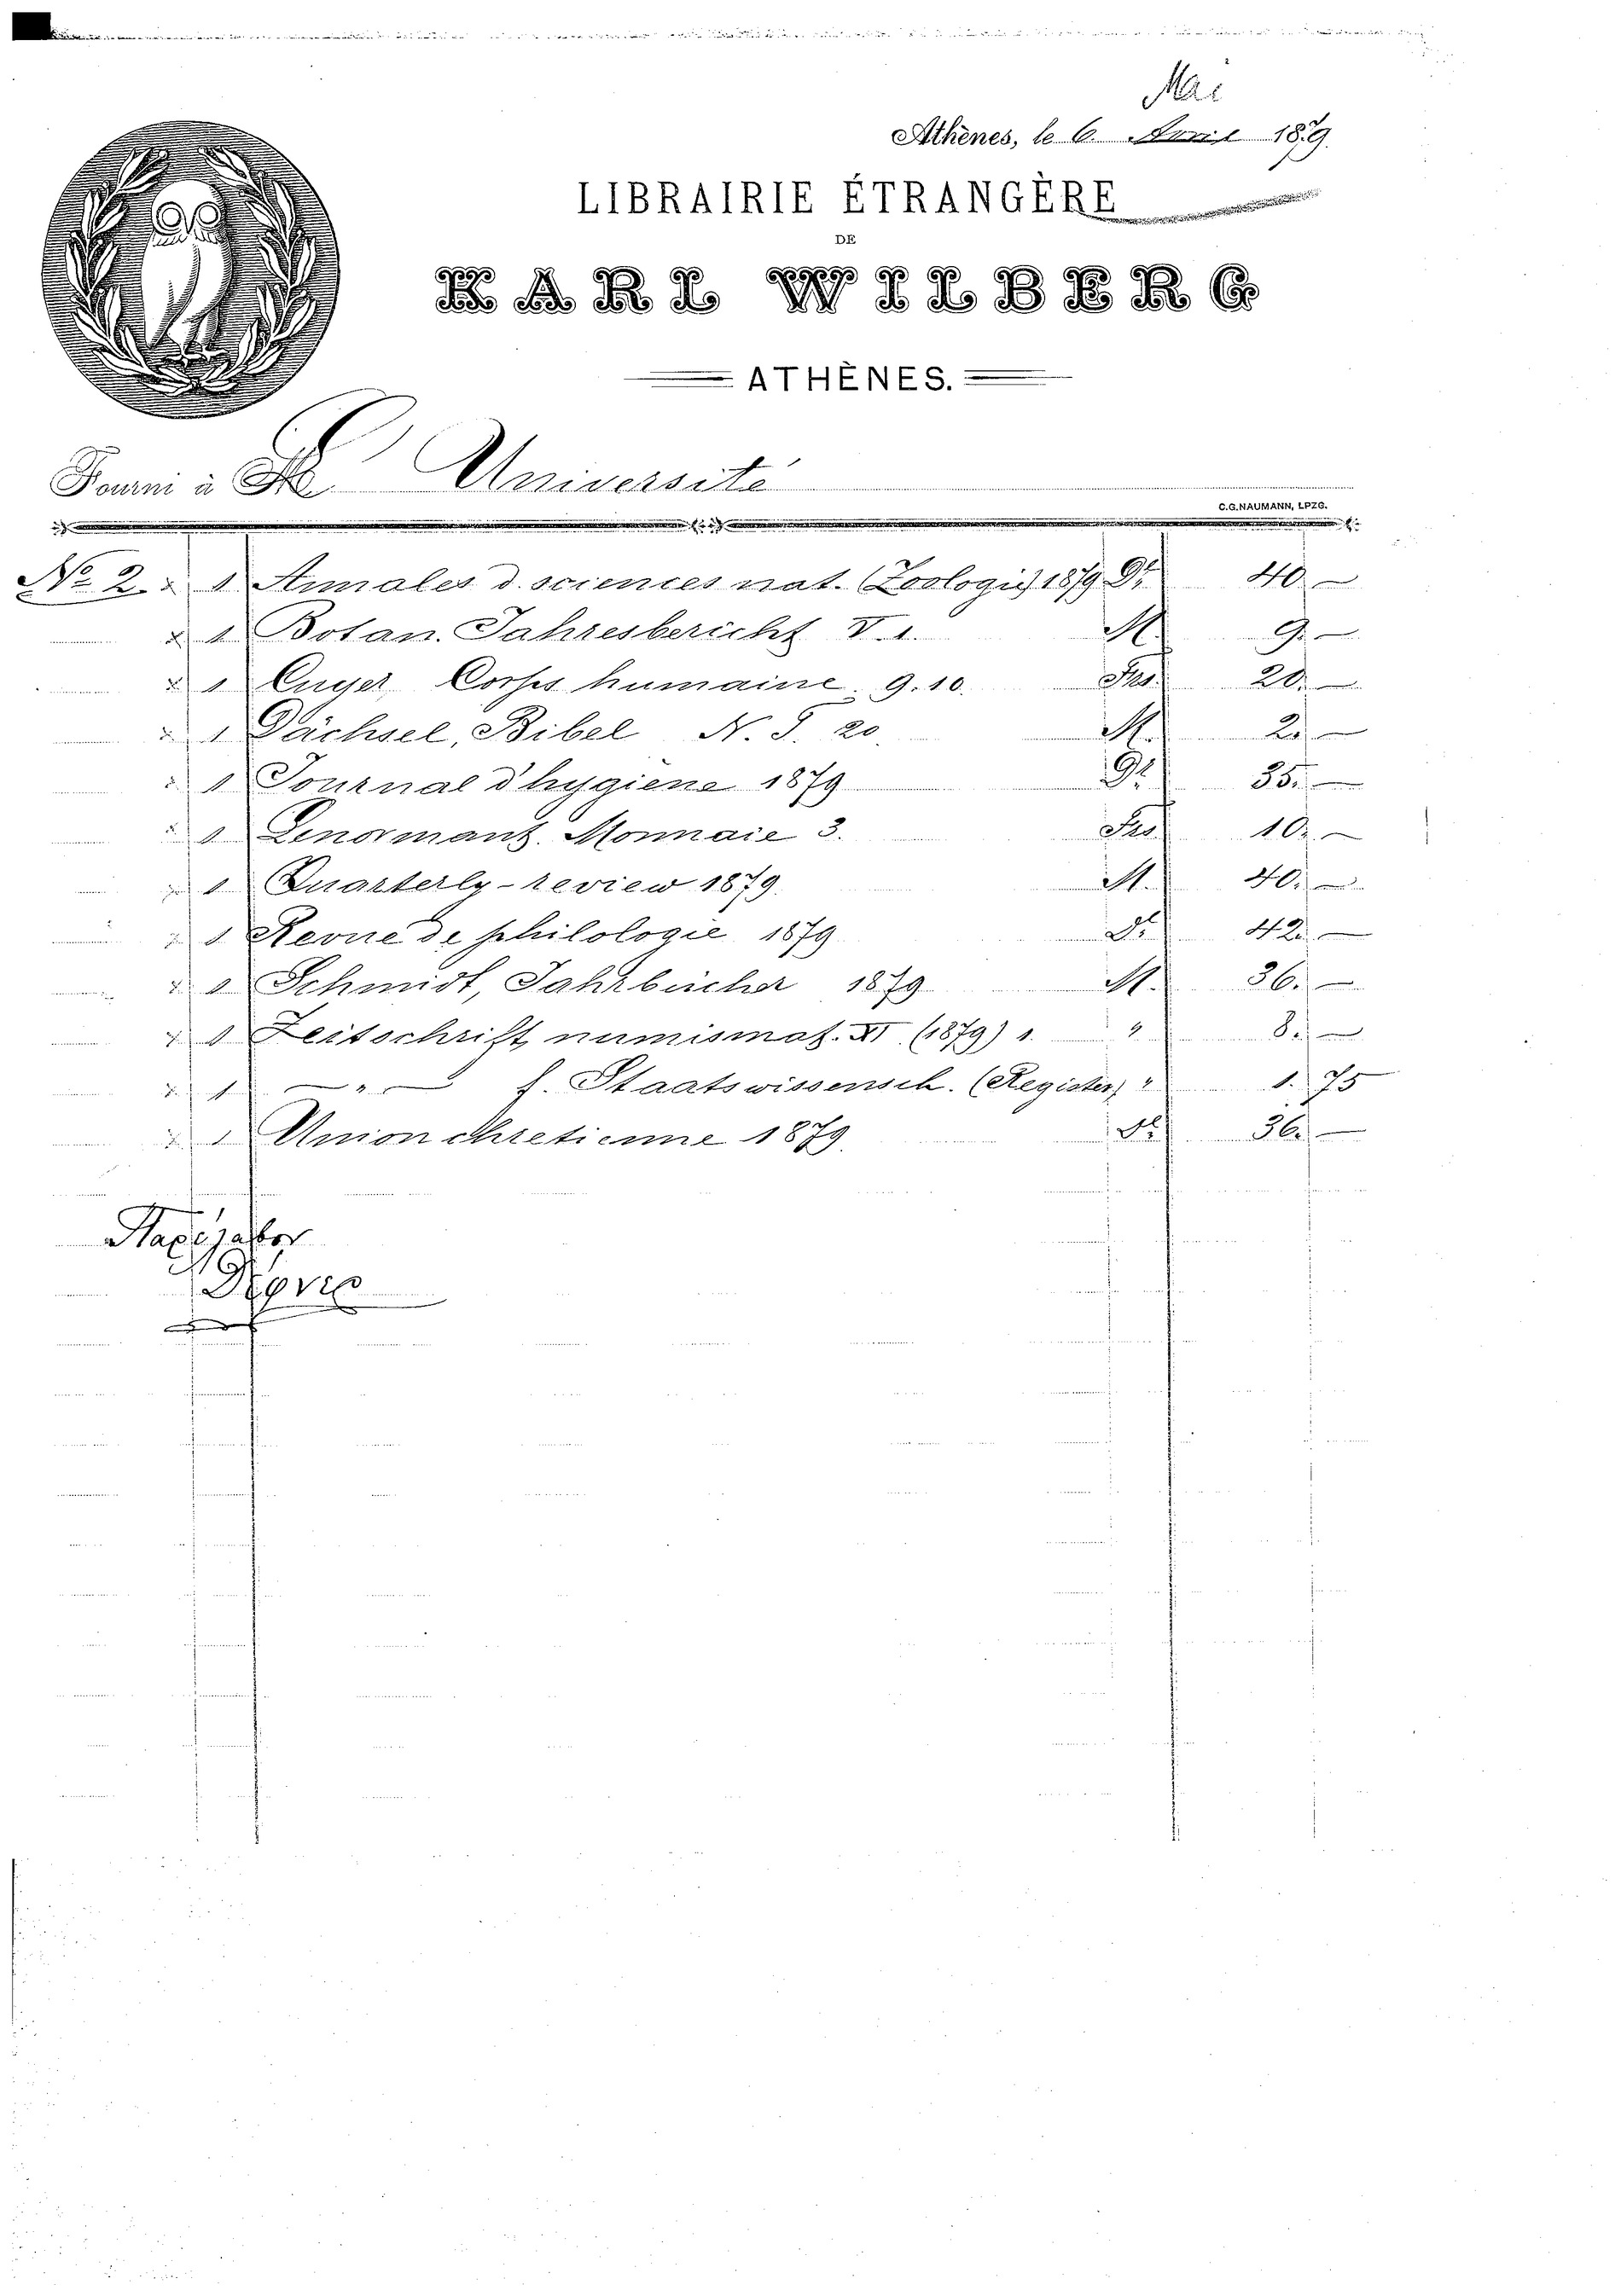 Mai
Athènes, le 6. Avril 1879.
LIBRAIRIE ÉTRANGÈRE
DE
KARL WILBERG
ATHÈNES.
Fourni à l' Université
C.G. NAUMANN, LPZG.
No 2. 1 Annales d. sciences nat. (Zoologie) 1879 Dr. 40.—
1 Botan. Jahresbericht V. 1. M. 9.—
1 Cuyer, Corps humaine. 9.10. Frs. 20.—
1 Dächsel, Bibel N. T. 20 M. 2.—
1 Journal d'hygiene 1879 Dr. 35.—
1 Lenormant. Monnaie 3. Frs. 10.—
1 Quarterly-review 1879. M. 40.—
1 Revue de philologie 1879 Dr. 42.—
1 Schmidt, Jahrbücher 1879 M. 36.—
1 Zeitschrift, numismat. VI. (1879) 1. " 8.—
1 — " — f. Staatswissensch. (Register) " 1.75
1 Union chretienne 1879. Dr. 36.—